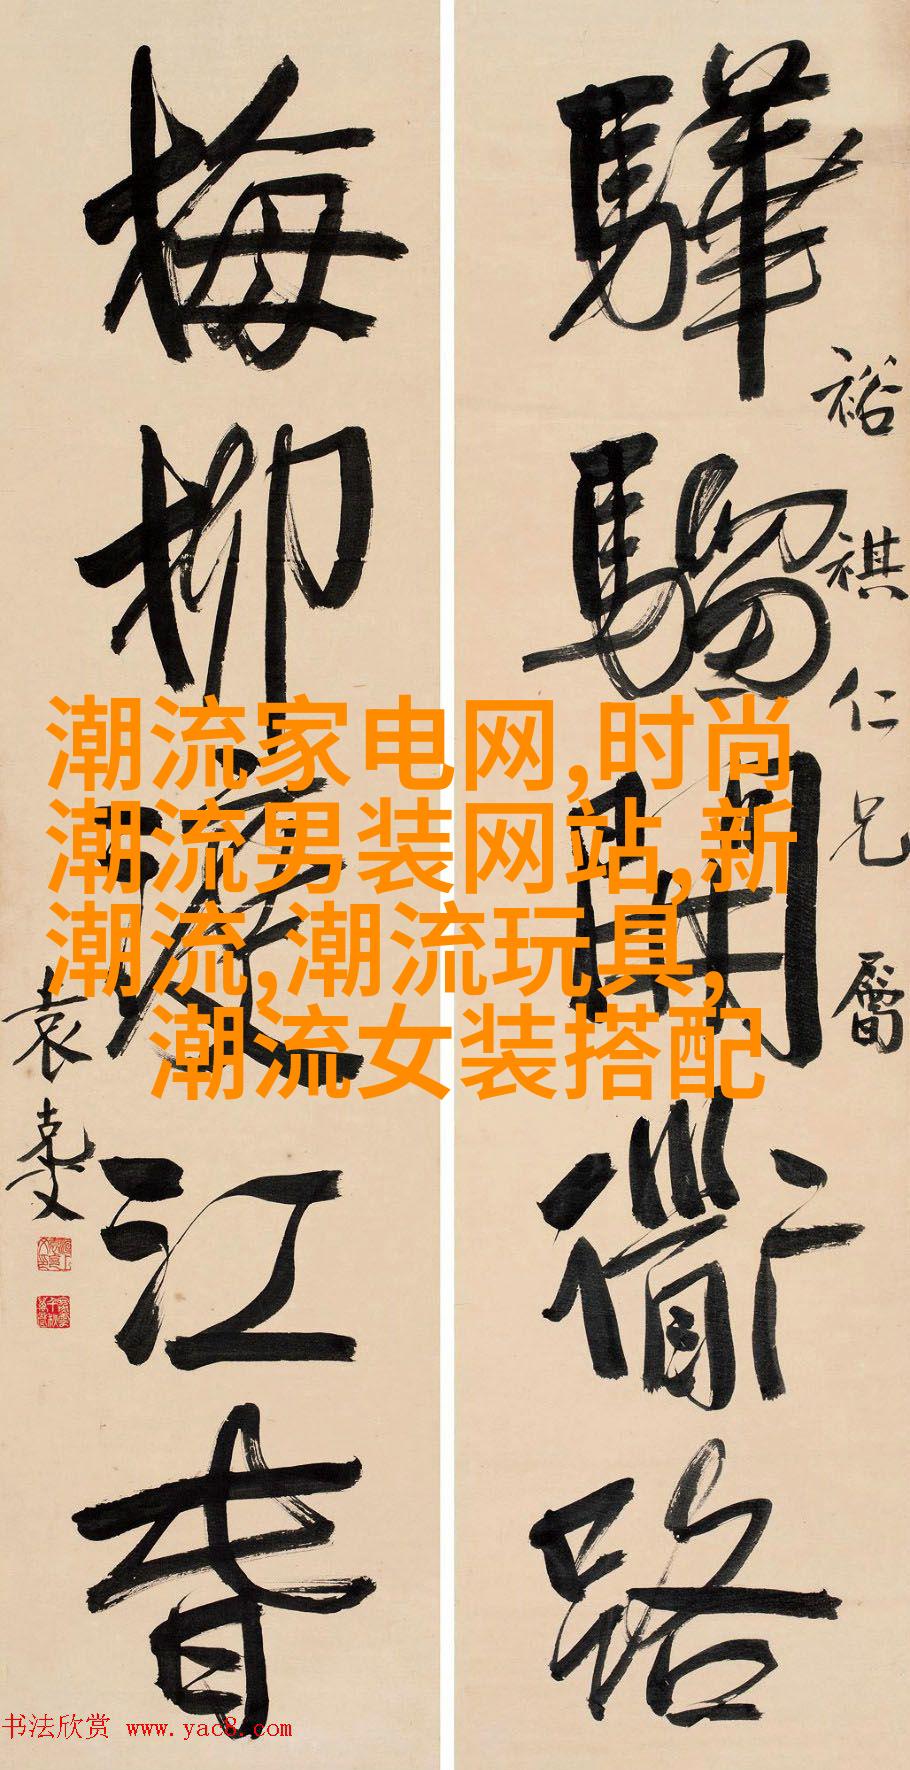 驊騮開衟路
裕祺仁兄屬
梅柳渡江春
袁克文
潮流家电网,时尚
潮流男装网站,新
潮流,潮流玩具,
潮流女装搭配
书法欣赏 www.yac8.com